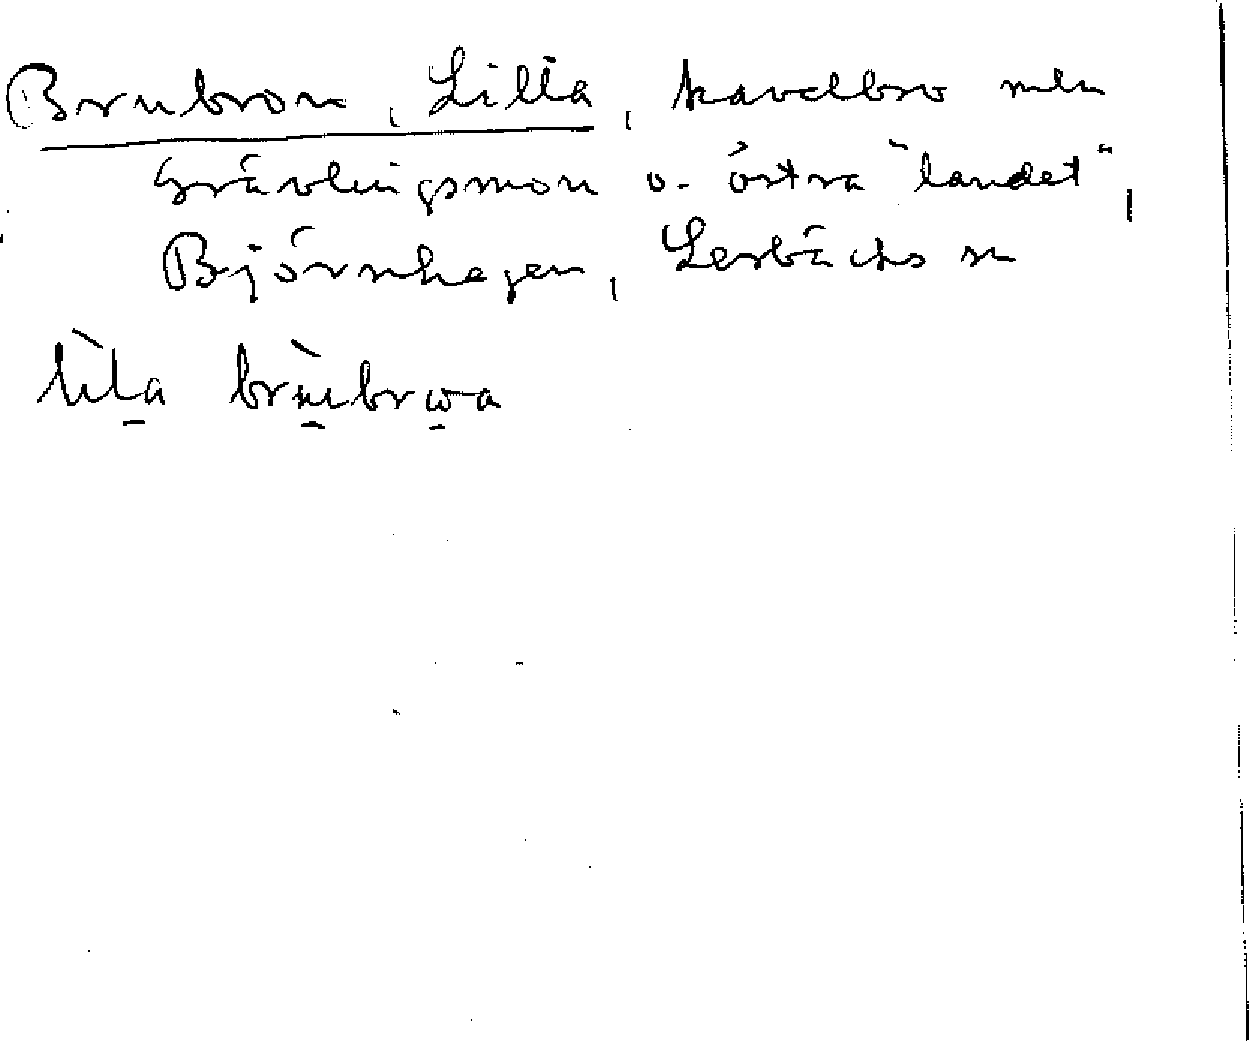 Brubron, Lilla, kavelbro mln
Grävlingsmon o. östra "landet",
Björnhagen, Lerbäcks sn
lìla brùbrωa